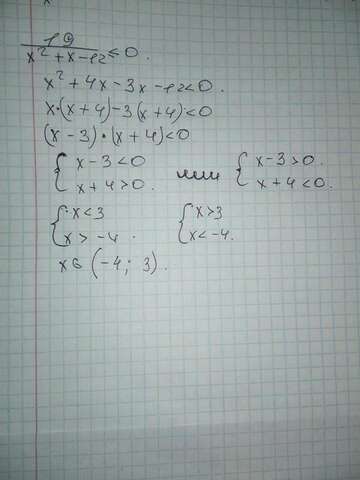 19
x² + x - 12 ≤ 0.
x² + 4x - 3x - 12 < 0.
x·(x + 4) - 3(x + 4) < 0
(x - 3)·(x + 4) < 0
{ x - 3 < 0 или { x - 3 > 0.
x + 4 > 0. x + 4 < 0.
{ x < 3 { x > 3
x > -4. x < -4.
x ∈ (-4; 3).